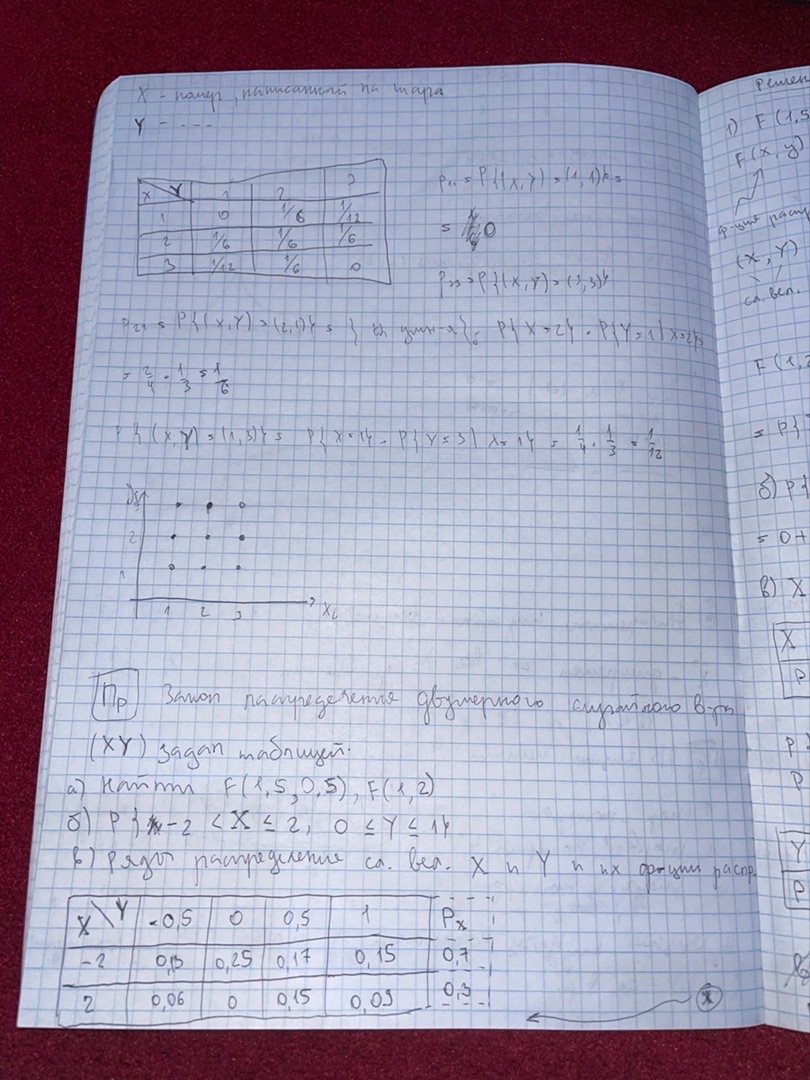 X - номер, написанный на шара
Y - ----
X \ Y 1 2 3
1 0 1/6 1/12
2 1/6 1/6 1/6
3 1/12 1/6 0
P₁₁ = P{(X,Y) = (1,1)} =
= 0
P₃₃ = P{(X,Y) = (3,3)}
P₂₁ = P{(X,Y) = (2,1)} = { умн-я } = P{X=2} · P{Y=1 | X=2} =
= 2/4 · 1/3 = 1/6
P{(X,Y) = (1,3)} = P{X=1} · P{Y=3 | X=1} = 1/4 · 1/3 = 1/12
2
1
1 2 3 Xi
Пр Закон распределения двумерного случайного в-ра
(XY) задан таблицей.
а) Найти F(1,5, 0,5), F(1,2)
б) P{-2 < X ≤ 2, 0 ≤ Y ≤ 1}
в) Ряды распределение сл. вел. X и Y и их ф-ции распр.
X \ Y -0,5 0 0,5 1 Px
-2 0,13 0,25 0,17 0,15 0,7
2 0,06 0 0,15 0,09 0,3
Решен
1) F(1,5
F(x,y)
ф-ция распр
(X,Y)
сл. вел.
F(1,2
= P{
б) P{
= 0+
в) X
X
P
P
P
Y
P